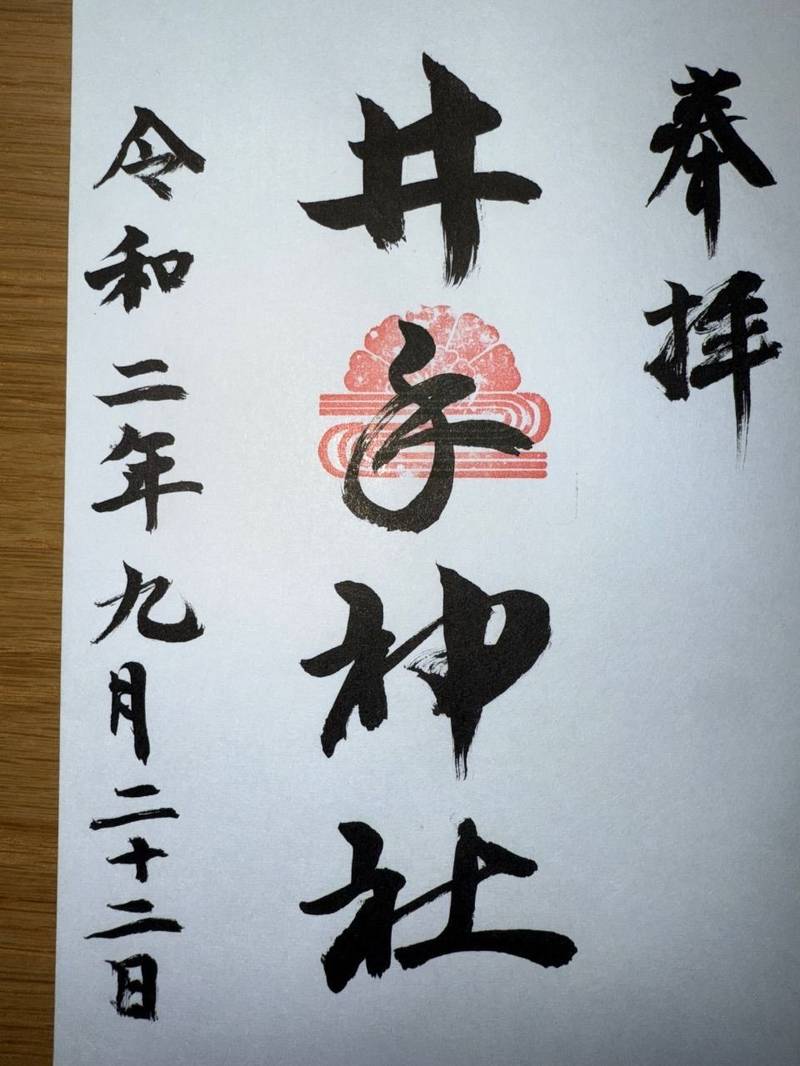 奉拝
井手神社
令和二年九月二十二日